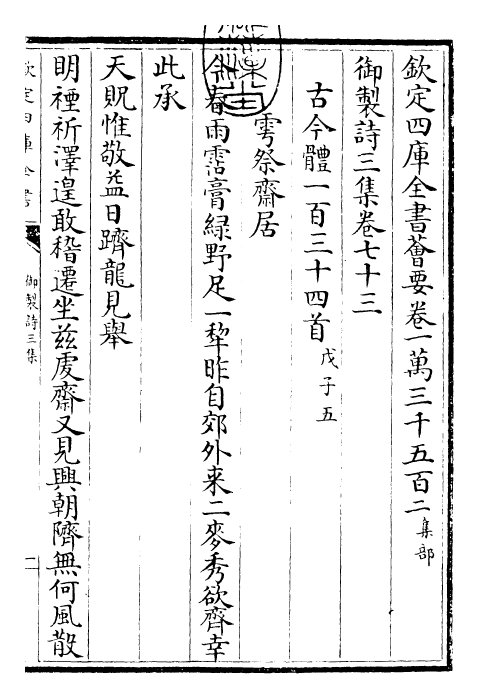 欽定四庫全書薈要卷一萬三千五百二集部
御製詩三集卷七十三
古今體一百三十四首戊子五
雩祭齋居
今春雨霑膏緑野足一犂昨自郊外来二麥秀欲齊幸
此承
天貺惟敬益日躋龍見舉
明禋祈澤遑敢稽遷坐兹䖏齋又見興朝隮無何風散
欽定四庫全書
御製詩三集
一